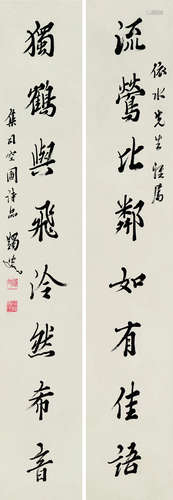 依水先生 正屬
流鶯比鄰如有佳語
獨鶴與飛泠然希音
集司空圖詩品